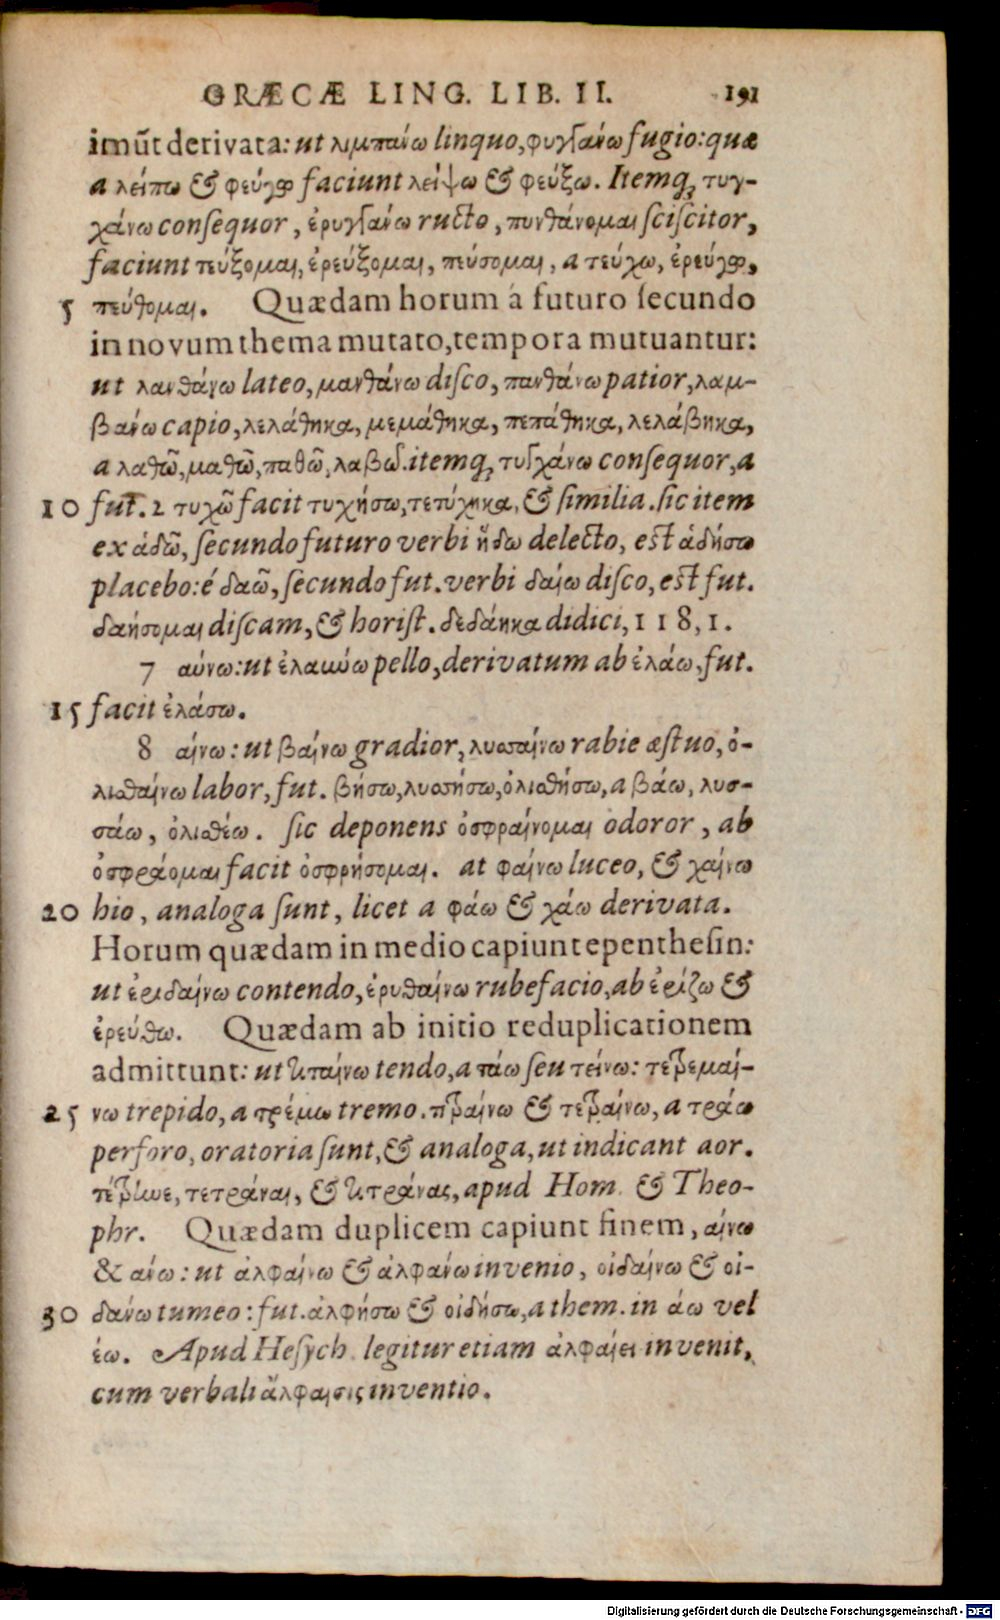 GRÆCÆ LING. LIB. II. 191
imūt derivata: ut λιμπάνω linquo, φυγγάνω fugio: quæ
a λείπω & φεύγω faciunt λείψω & φεύξω. Itemq; τυγ-
χάνω conſequor, ἐρυγγάνω ructo, πυνθάνομαι ſciſcitor,
faciunt τεύξομαι, ἐρεύξομαι, πεύσομαι, a τεύχω, ἐρεύγω,
5 πεύθομαι. Quædam horum á futuro ſecundo
in novum thema mutato, tempora mutuantur:
ut λανθάνω lateo, μανθάνω diſco, πανθάνω patior, λαμ-
βάνω capio, λελάθηκα, μεμάθηκα, πεπάθηκα, λελάβηκα,
a λαθῶ, μαθῶ, παθῶ, λαβῶ. itemq; τυγχάνω conſequor, a
10 fut. 2 τυχῶ facit τυχήσω, τετύχηκα, & ſimilia. ſic item
ex ἁδῶ, ſecundo futuro verbi ἥδω delecto, eſt ἁδήσω
placebo: é δαῶ, ſecundo fut. verbi δαίω diſco, eſt fut.
δαήσομαι diſcam, & horiſt. δεδάηκα didici, 118, 1.
7 αύνω: ut ἐλαύνω pello, derivatum ab ἐλάω, fut.
15 facit ἐλάσω.
8 αίνω: ut βαίνω gradior, λυσσαίνω rabie æſtuo, ὀ-
λισθαίνω labor, fut. βήσω, λυσσήσω, ὀλισθήσω, a βάω, λυσ-
σάω, ὀλισθέω. ſic deponens ὀσφραίνομαι odoror, ab
ὀσφράομαι facit ὀσφρήσομαι. at φαίνω luceo, & χαίνω
20 hio, analoga ſunt, licet a φάω & χάω derivata.
Horum quædam in medio capiunt epentheſin:
ut ἐριδαίνω contendo, ἐρυθαίνω rubefacio, ab ἐρίζω &
ἐρεύθω. Quædam ab initio reduplicationem
admittunt: ut τιταίνω tendo, a τάω ſeu τείνω: τετρεμαί-
25 νω trepido, a τρέμω tremo. τιτραίνω & τετραίνω, a τράω
perforo, oratoria ſunt, & analoga, ut indicant aor.
τέτρηνε, τετρᾶναι, & τιτράνας, apud Hom. & Theo-
phr. Quædam duplicem capiunt finem, αίνω
& άνω: ut ἀλφαίνω & ἀλφάνω invenio, οἰδαίνω & οἰ-
30 δάνω tumeo: fut. ἀλφήσω & οἰδήσω, a them. in άω vel
έω. Apud Heſych. legitur etiam ἀλφαίει invenit,
cum verbali ἄλφαισις inventio.
Digitalisierung gefördert durch die Deutsche Forschungsgemeinschaft - DFG